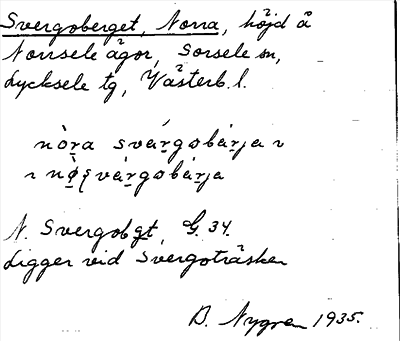 Svergoberget, Norra, höjd å
Norrsele ägor, Sorsele sn,
Lycksele tg, Västerb. l.
N. Svergobgt, G. 34.
Ligger vid Svergoträsken
B. Nygren 1935.